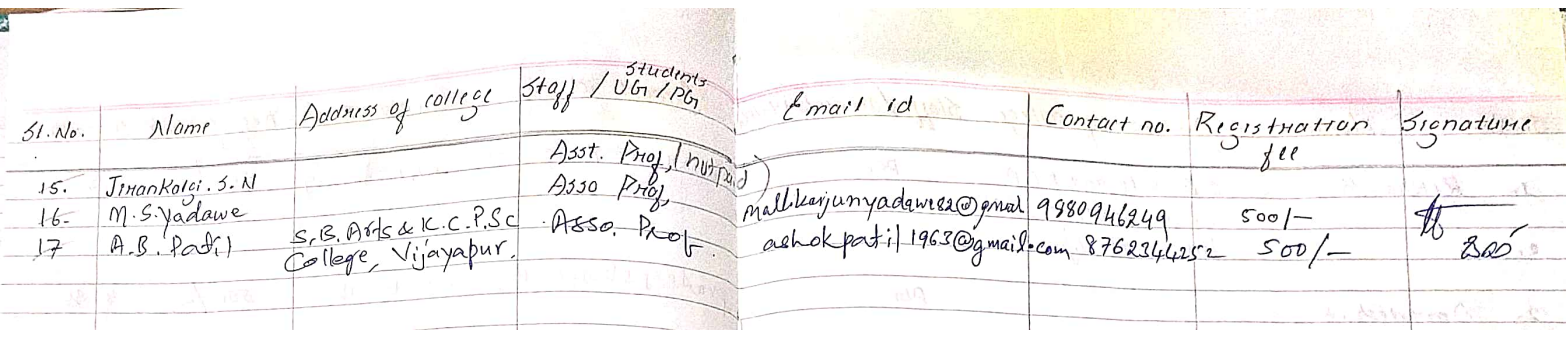 Sl. No. Name Address of college Staff / Students UG / PG Email id Contact no. Registration fee Signature
15. Jirankalgi. S. N Asst. Prof, (not paid)
16. M. S. Yadawe Asso Prof, mallikarjunyadawe82@gmail 9980946249 500/-
17 A.B. Patil S.B. Arts & K.C.P. Sc College, Vijayapur. Asso. Prof. ashokpatil1963@gmail.com 8762344252 500/-